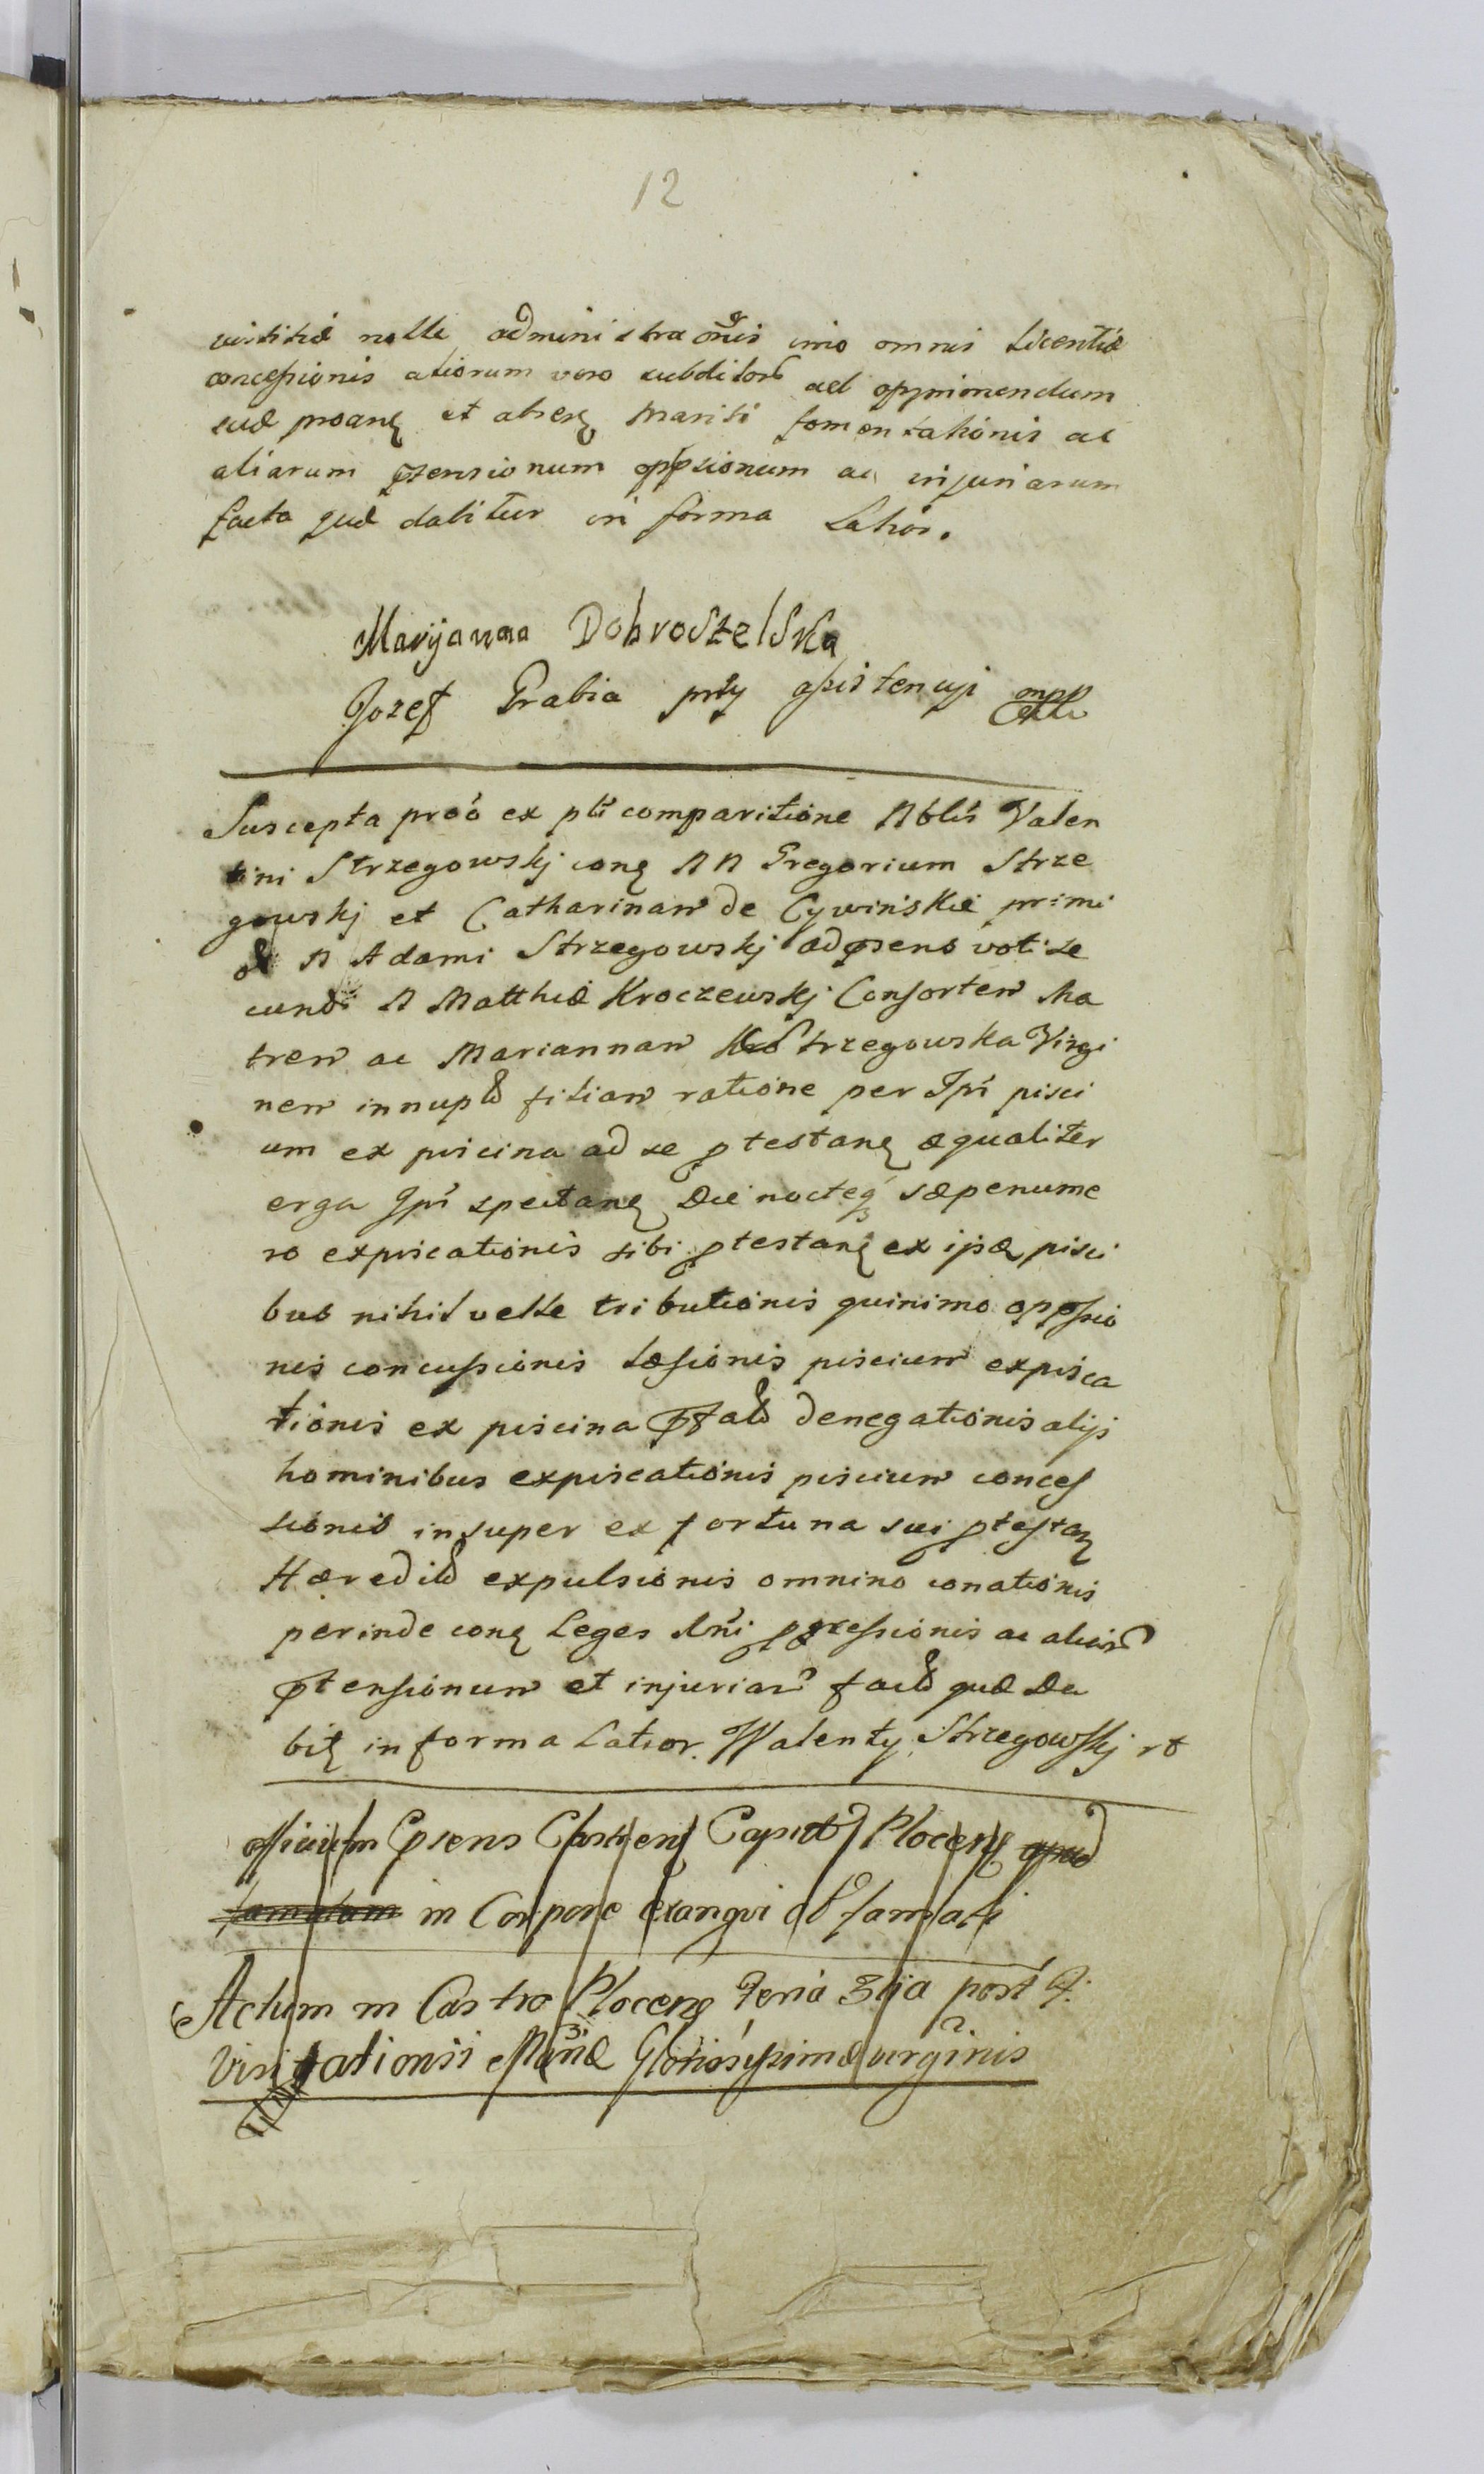 12
justitiæ nolle administraōnis imo omnis Licentiæ
concessionis aliorum vero subditorū ad opprimendum
suæ proanę et absenę Mariti fomentationis ac
aliarum prsensionum oppsionum ac injuriarum
facta quæ dabitur in forma Latior.
Maryjanna Dobroszelska
Jozef Grabia przy assistencyi mpp
Suscepta proō ex pti comparitione Nblis Valen
tini Strzegowskj conę NN Gregorium Strze
gowskj et Catharinam de Cywinskie primi
ol N Adami Strzegowskj ad prsens voti se
cundi N Matthiæ Kroczewskj Consortem Ma
trem ac Mariannam Strzegowska Virgi
nem innuptā filiam ratione per Ipsi pisci
um ex piscina ad se ptestanę æqualiter
erga Ipsi spectanę Die nocteq sæpenume
ro expiscationis sibi ptestanę ex ipsę pisci
bus nihil velle tributionis quinimo oppssio
nis concussionis læsionis piscium expisca
tionis ex piscina pfatā denegationis alijs
hominibus expiscationis piscium conces
sionis insuper ex fortuna sui ptestanę
Hæreditā expulsionis omnino conationis
perinde conę Leges Rni pgressionis ac aliarū
ptensionum et injuriarū factā quæ Da
bitę in forma Latior. Walenty Strzegowskj
Officium Cpsens Castren Capitl Plocens apud
famatam in Corpore exangvi ol famati
Actum in Castro Plocens Feria 3tia post F.
Visitationis Mariæ Gloriosissimæ virginis